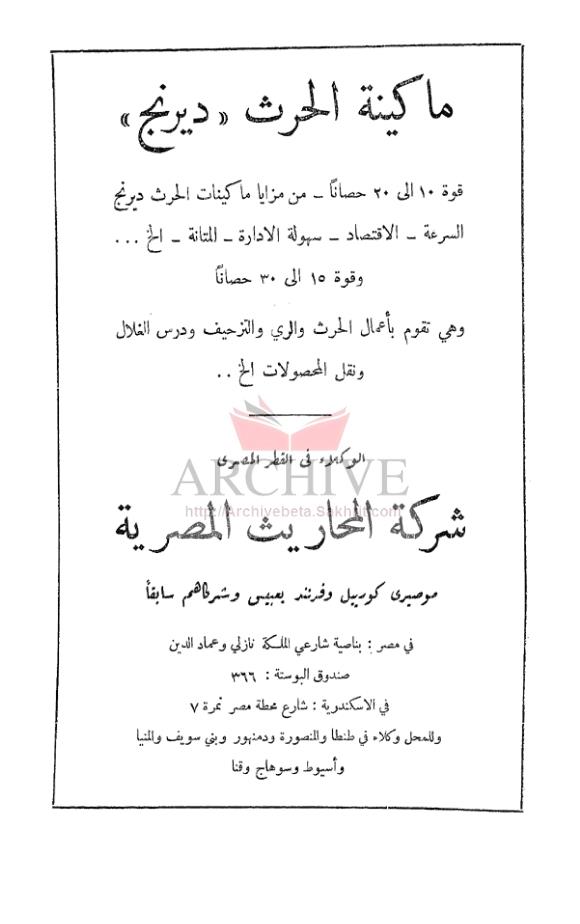 ماكينة الحرث «ديرنج»
قوة ١٠ الى ٢٠ حصانًا ــ من مزايا ماكينات الحرث ديرنج
السرعة ــ الاقتصاد ــ سهولة الادارة ــ المتانة ــ الخ ...
وقوة ١٥ الى ٣٠ حصانًا
وهي تقوم بأعمال الحرث والري والتزحيف ودرس الغلال
ونقل المحصولات الخ ..
الوكلاء فى القطر المصرى
ARCHIVE
http://Archivebeta.Sakhrit.com
شركة المحاريث المصرية
موصيرى كورييل وفرنند يعبيس وشركاهم سابقاً
في مصر : بناصية شارعي الملكة نازلي وعماد الدين
صندوق البوستة : ٣٦٦
في الاسكندرية : شارع محطة مصر نمرة ٧
وللمحل وكلاء في طنطا والمنصورة ودمنهور وبني سويف والمنيا
وأسيوط وسوهاج وقنا